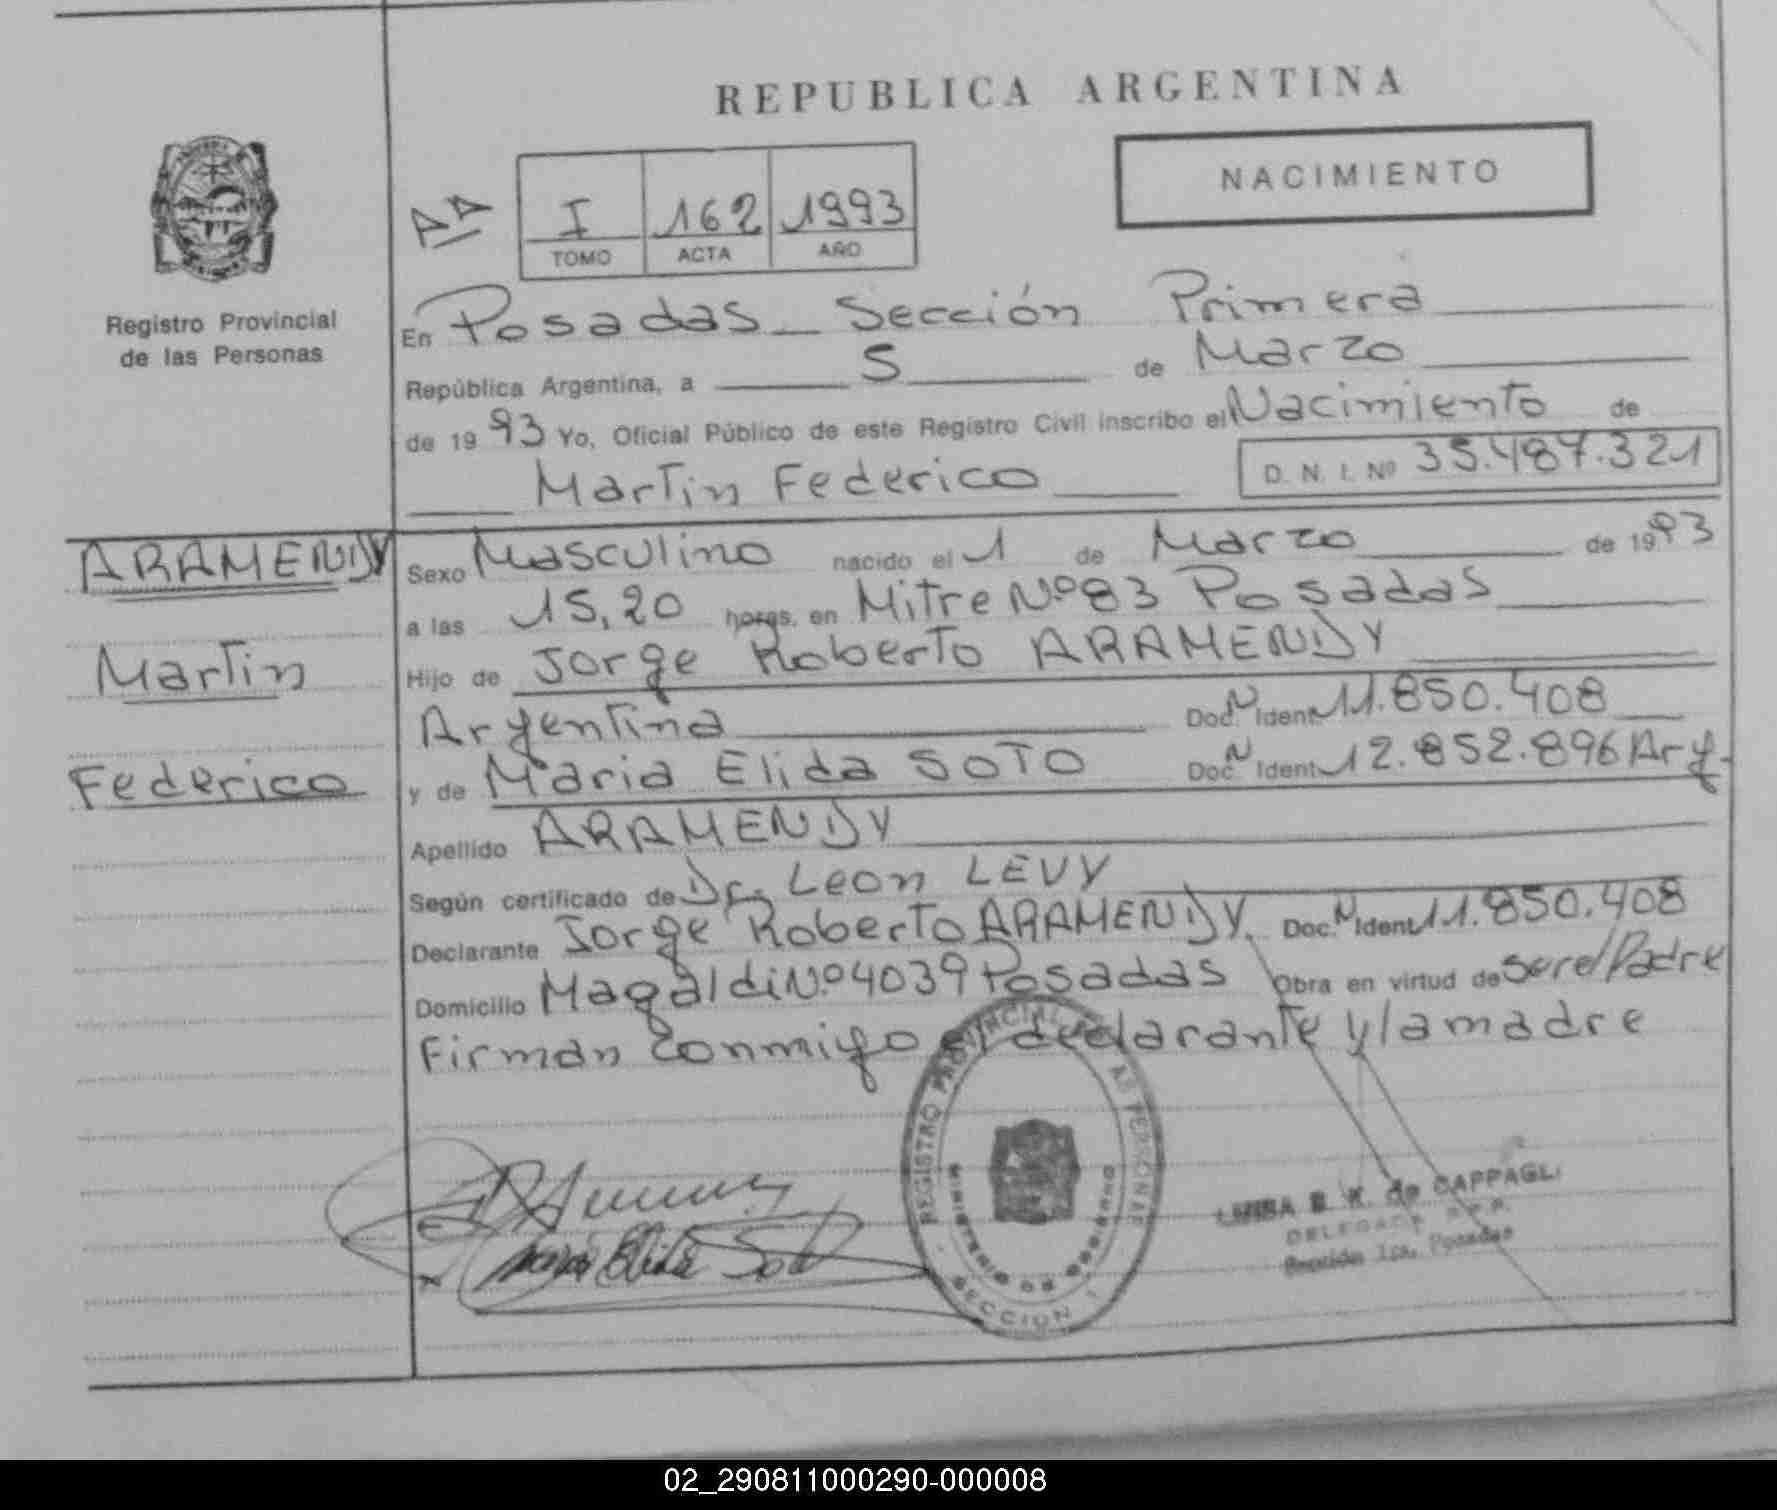 REPUBLICA ARGENTINA
NACIMIENTO
I 162 1993
TOMO ACTA AÑO
Registro Provincial
de las Personas
En Posadas Sección Primera
República Argentina, a 5 de Marzo
de 1993 Yo, Oficial Público de este Registro Civil inscribo el Nacimiento de
Martin Federico D. N. I. Nº 35.487.321
ARAMENDY
Martin
Federico
Sexo Masculino nacido el 1 de Marzo de 1993
a las 15,20 horas, en Mitre Nº 83 Posadas
Hijo de Jorge Roberto ARAMENDY
Argentina Doc. N Ident 11.850.408
y de Maria Elida SOTO Doc. N Ident 12.852.896 Arg.
Apellido ARAMENDY
Según certificado de Dr. Leon LEVY
Declarante Jorge Roberto ARAMENDY. Doc. N Ident 11.850.408
Domicilio Magaldi Nº 4039 Posadas Obra en virtud de ser el Padre
Firman conmigo el declarante y la madre
REGISTRO PROVINCIAL DE LAS PERSONAS
MINISTERIO DE GOBIERNO
SECCION 1
Maria Elida Soto
LUISA B. K. de CAPPAGLI
DELEGADA R.P.P.
Sección 1ra. Posadas
02_290811000290-000008